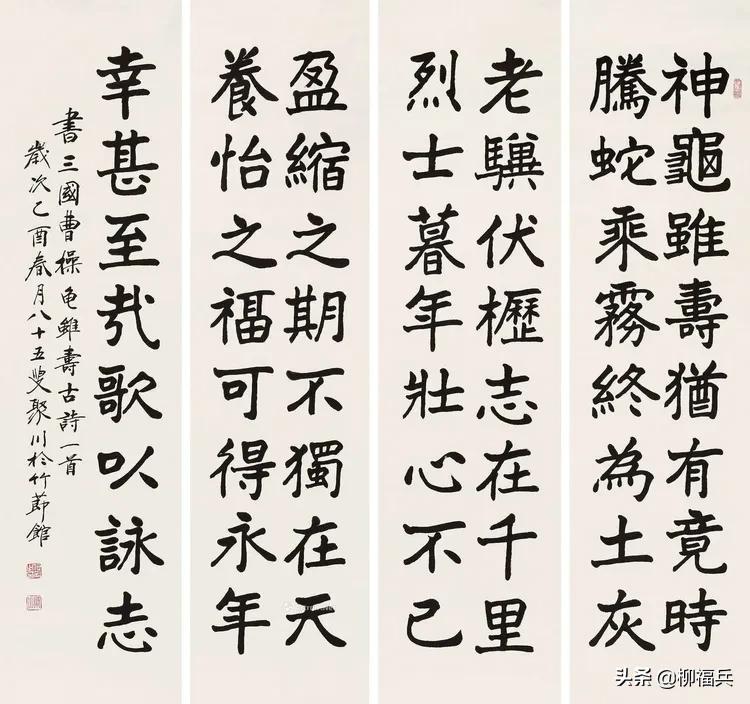 神龜雖壽猶有竟時
騰蛇乘霧終為土灰
老驥伏櫪志在千里
烈士暮年壯心不已
盈縮之期不獨在天
養怡之福可得永年
幸甚至哉歌以詠志
書三國曹操龟雖壽古詩一首
歲次乙酉春月八十五叟聚川於竹莭館
头条 @柳福兵